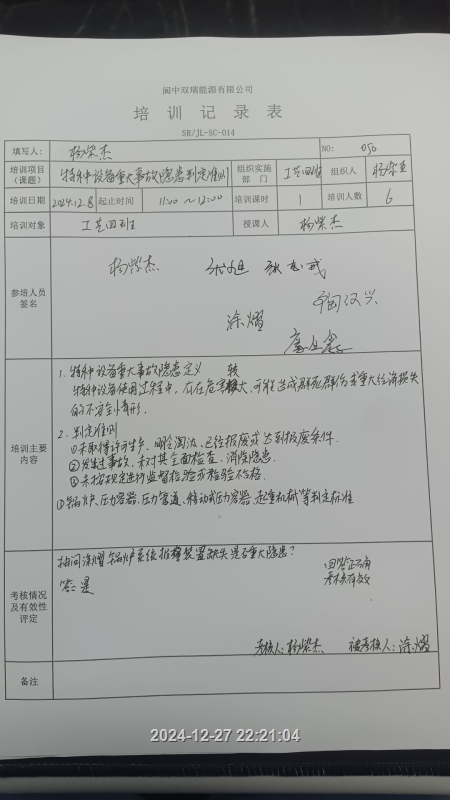 阆中双瑞能源有限公司
培训记录表
SR/JL-SC-014
填写人： 杨荣杰 NO： 050
培训项目（课题） 特种设备重大事故隐患判定准则 组织实施部门 工艺四班 组织人 杨荣杰
培训日期 2024.12.8 起止时间 11:00～12:00 培训课时 1 培训人数 6
培训对象 工艺四班 授课人 杨荣杰
参培人员签名
杨荣杰
涂熠
培训主要内容
1. 特种设备重大事故隐患定义
特种设备使用过程中，存在危害较大，可能造成群死群伤或重大经济损失
的不安全情形．
2. 判定准则
①未取得许可生产、国家淘汰、已经报废或达到报废条件．
②发生过事故，未对其全面检查、消除隐患．
③未按规定进行监督检验或检验不合格．
④锅炉、压力容器、压力管道、移动式压力容器、起重机械等判定标准
考核情况及有效性评定
抽问涂熠锅炉系统报警装置缺失是否重大隐患？
答：是
回答正确
考核有效
考核人：杨荣杰 被考核人：涂熠
备注
2024-12-27 22:21:04